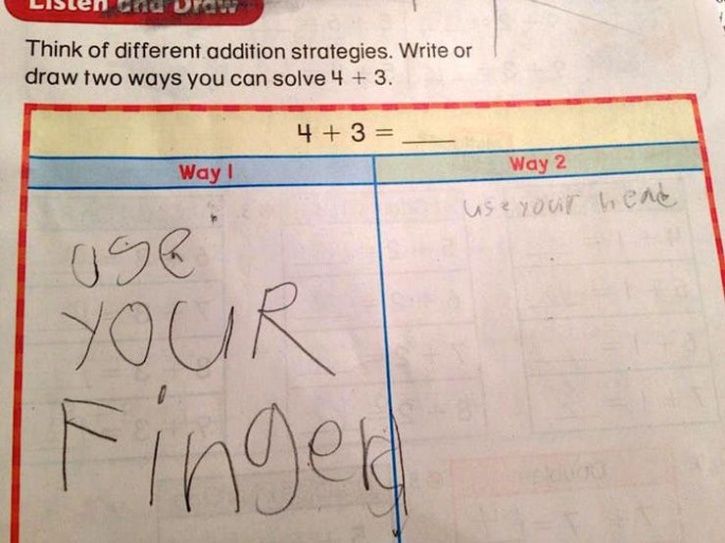 Listen and Draw
Think of different addition strategies. Write or
draw two ways you can solve 4 + 3.
4 + 3 = ____
Way 1
Way 2
use your head
use
YOUR
Fingers